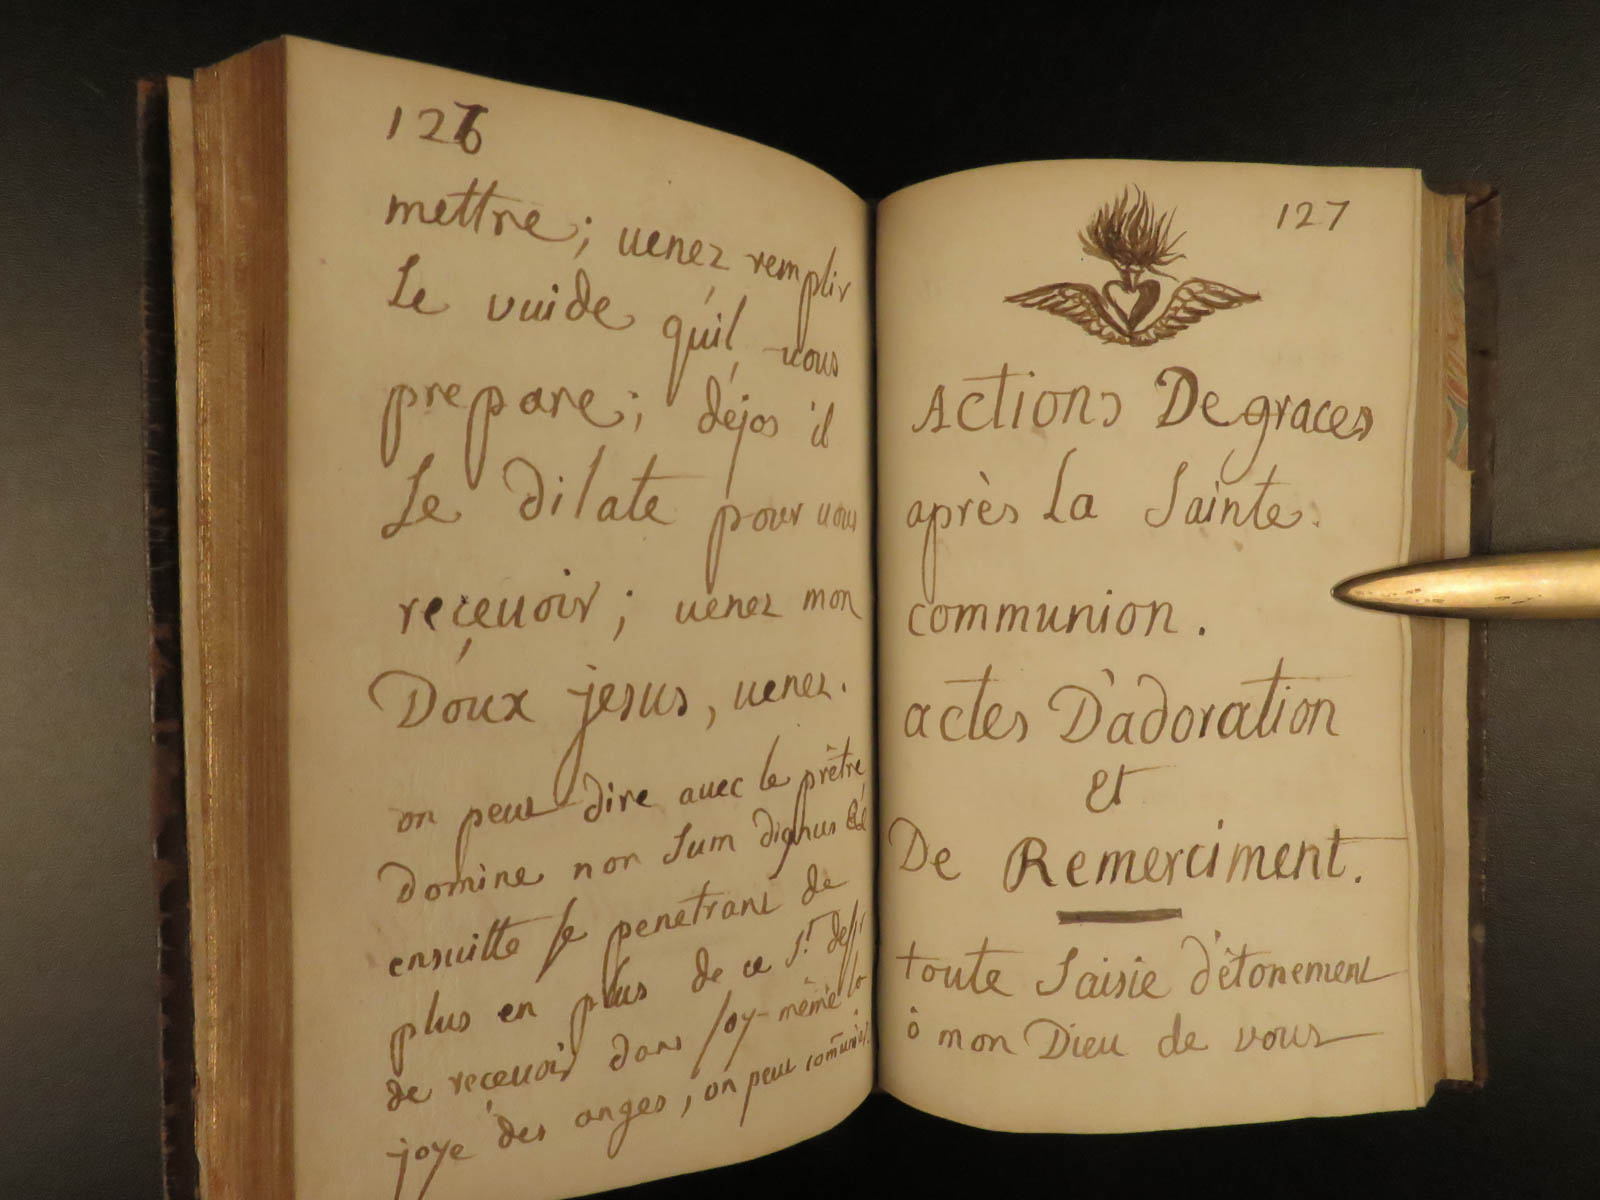 126
mettre; uenez remplir
Le vuide qu'il vous
prepare; déjas il
Le dilate pour uous
reçeuoir; uenez mon
Doux jesus, uenez.
on peut dire auec le prêtre
domine non sum dignus
ensuitte se penetrant de
plus en plus de ce St. desir
de reçeuoir dans soy-même la
joye des anges, on peut comunier.
127
Actions De graces
après La Sainte.
communion.
actes D'adoration
et
De Remerciment.
toute Saisie d'étonement
ô mon Dieu de vous